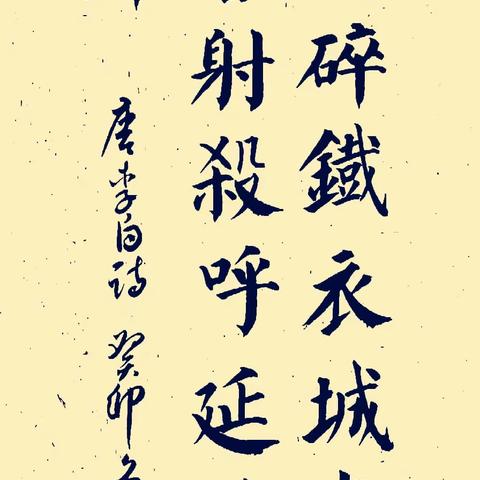 碎鐵衣城
射殺呼延
唐李白詩 癸卯